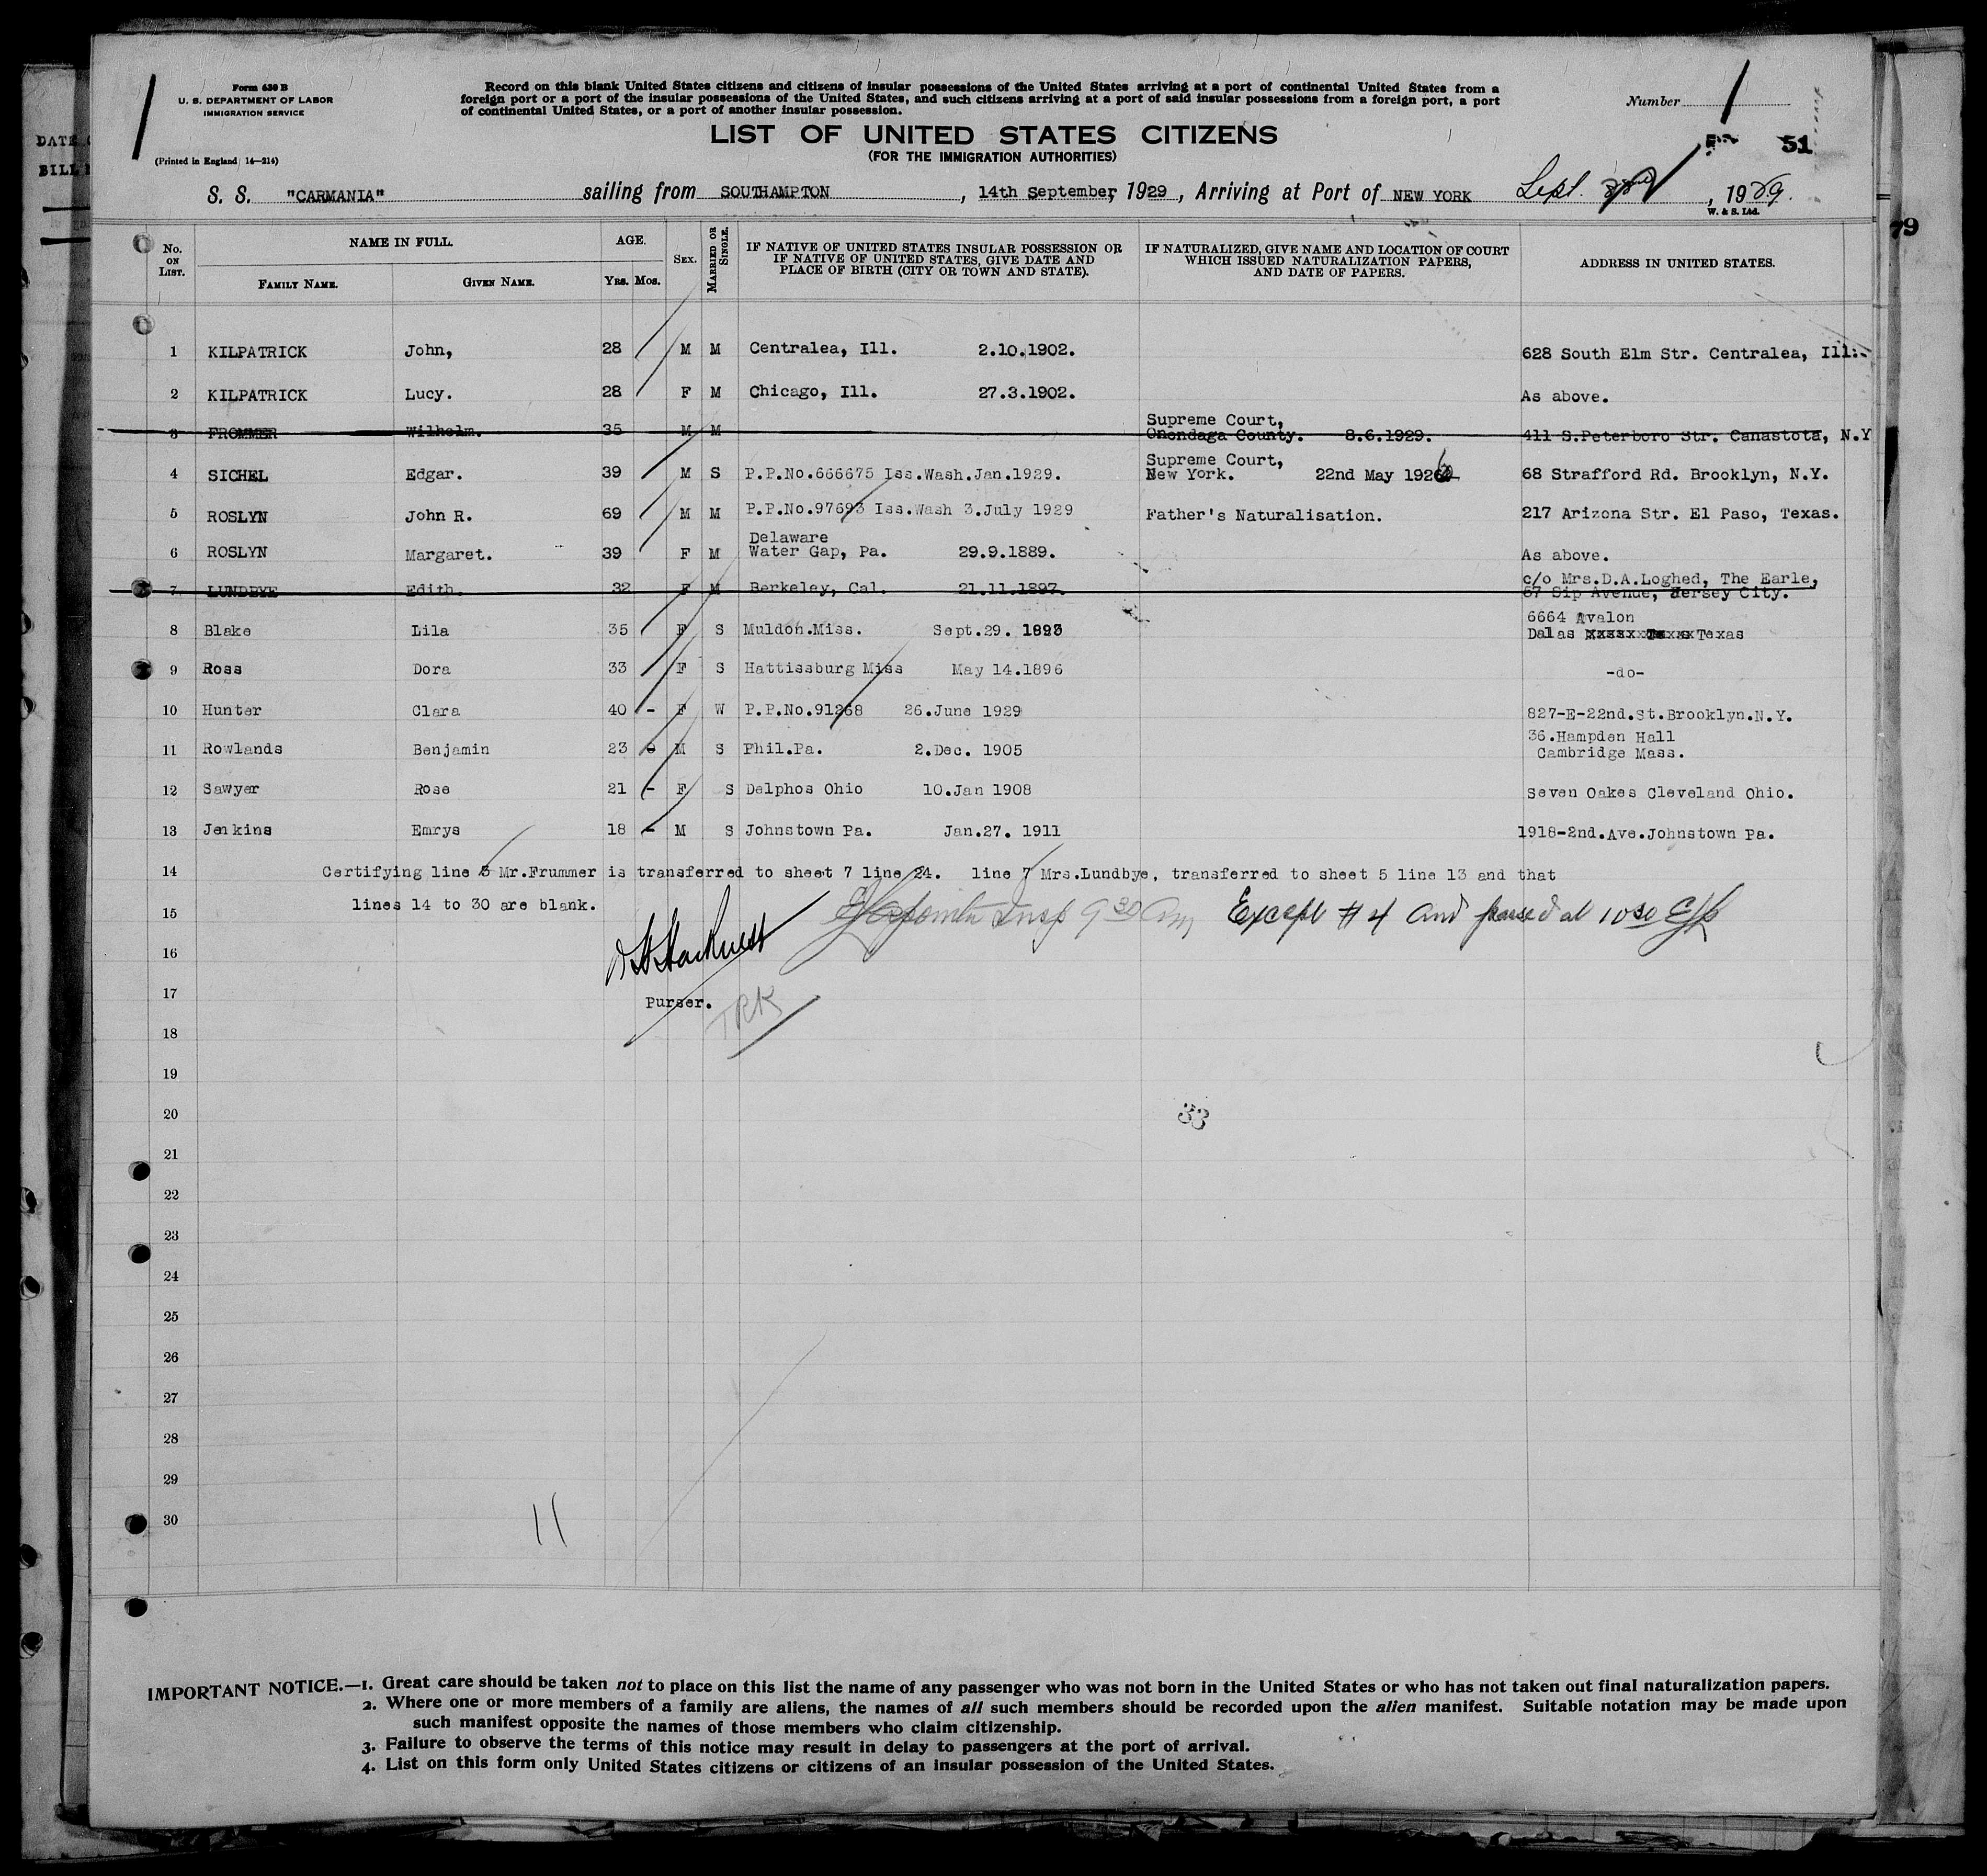 Form 630 B
U. S. DEPARTMENT OF LABOR
IMMIGRATION SERVICE
(Printed in England 14—214)
Record on this blank United States citizens and citizens of insular possessions of the United States arriving at a port of continental United States from a
foreign port or a port of the insular possessions of the United States, and such citizens arriving at a port of said insular possessions from a foreign port, a port
of continental United States, or a port of another insular possession.
Number 1
LIST OF UNITED STATES CITIZENS
(FOR THE IMMIGRATION AUTHORITIES)
51
DATE
BILL
S. S. "CARMANIA" sailing from SOUTHAMPTON, 14th September, 1929, Arriving at Port of NEW YORK Sept. 22nd, 1929.
W. & S. Ltd.
79
No. ON LIST. NAME IN FULL. FAMILY NAME. GIVEN NAME. AGE. YRS. MOS. SEX. MARRIED OR SINGLE. IF NATIVE OF UNITED STATES INSULAR POSSESSION OR IF NATIVE OF UNITED STATES, GIVE DATE AND PLACE OF BIRTH (CITY OR TOWN AND STATE). IF NATURALIZED, GIVE NAME AND LOCATION OF COURT WHICH ISSUED NATURALIZATION PAPERS, AND DATE OF PAPERS. ADDRESS IN UNITED STATES.
1 KILPATRICK John, 28 M M Centralea, Ill. 2.10.1902. 628 South Elm Str. Centralea, Ill.
2 KILPATRICK Lucy. 28 F M Chicago, Ill. 27.3.1902. As above.
3 FROMMER Wilhelm. 35 M M Supreme Court, Onondaga County. 8.6.1929. 411 S.Peterboro Str. Canastota, N.Y
4 SICHEL Edgar. 39 M S P.P.No.666675 Iss.Wash.Jan.1929. Supreme Court, New York. 22nd May 1926 68 Strafford Rd. Brooklyn, N.Y.
5 ROSLYN John R. 69 M M P.P.No.97693 Iss.Wash 3.July 1929 Father's Naturalisation. 217 Arizona Str. El Paso, Texas.
6 ROSLYN Margaret. 39 F M Delaware Water Gap, Pa. 29.9.1889. As above.
7 LUNDBYE Edith. 32 F M Berkeley, Cal. 21.11.1897. c/o Mrs.D.A.Loghed, The Earle, 67 Sip Avenue, Jersey City.
8 Blake Lila 35 F S Muldon.Miss. Sept.29. 1893 6664 Avalon Dalas Texas
9 Ross Dora 33 F S Hattissburg Miss May 14.1896 -do-
10 Hunter Clara 40 - F W P.P.No.91268 26.June 1929 827-E-22nd.St.Brooklyn.N.Y.
11 Rowlands Benjamin 23 9 M S Phil.Pa. 2.Dec. 1905 36.Hampden Hall Cambridge Mass.
12 Sawyer Rose 21 - F S Delphos Ohio 10.Jan 1908 Seven Oakes Cleveland Ohio.
13 Jenkins Emrys 18 - M S Johnstown Pa. Jan.27. 1911 1918-2nd.Ave.Johnstown Pa.
14 Certifying line 3 Mr.Frummer is transferred to sheet 7 line 24. line 7 Mrs.Lundbye, transferred to sheet 5 line 13 and that
15 lines 14 to 30 are blank. Insp 9 30 Am, Except # 4 and passed at 10 30
16
17 Purser. TRK
18
19
20 33
21
22
23
24
25
26
27
28
29
30 11
IMPORTANT NOTICE.—1. Great care should be taken not to place on this list the name of any passenger who was not born in the United States or who has not taken out final naturalization papers.
2. Where one or more members of a family are aliens, the names of all such members should be recorded upon the alien manifest. Suitable notation may be made upon
such manifest opposite the names of those members who claim citizenship.
3. Failure to observe the terms of this notice may result in delay to passengers at the port of arrival.
4. List on this form only United States citizens or citizens of an insular possession of the United States.